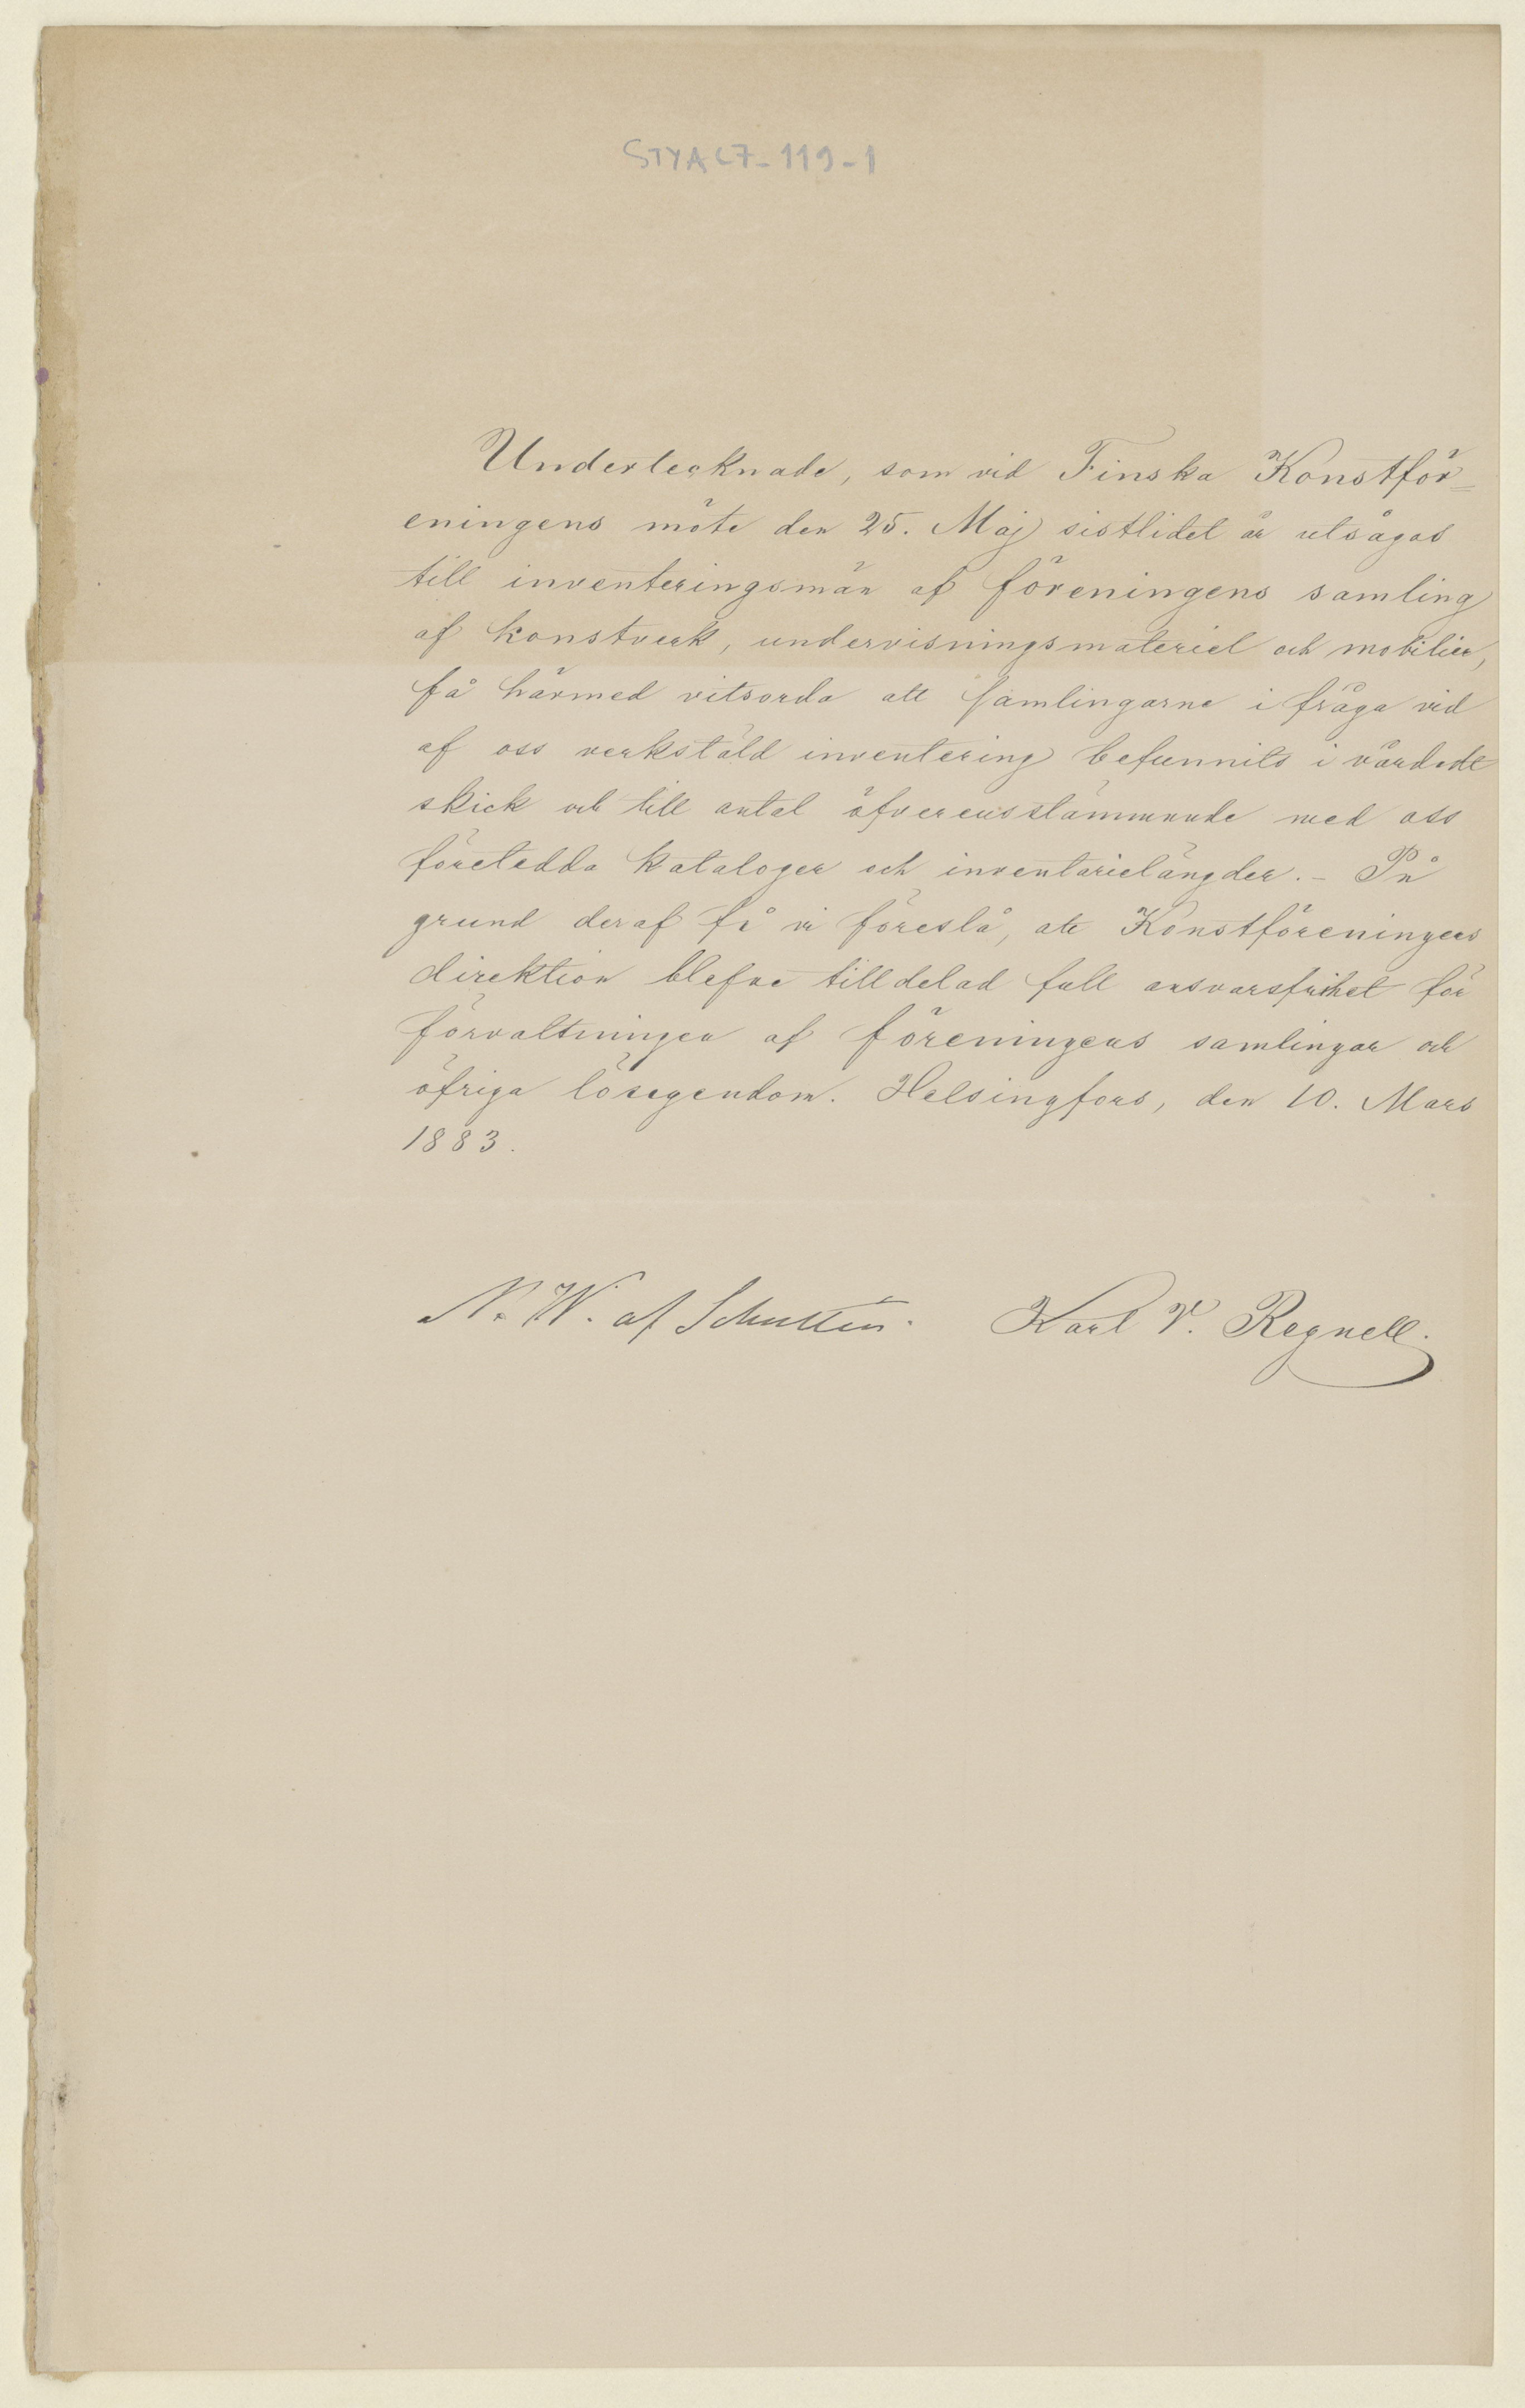 STYA C7-119-1
Undertecknade, som vid Finska Konstför=
eningens möte den 25. Maj sistlidet år utsågos
till inventeringsmän af föreningens samling
af konstverk, undervisningsmateriel och mobilier,
få härmed vitsorda att samlingarne i fråga vid
af oss verkstäld inventering befunnits i vårdadt
skick och till antal öfverensstämmande med oss
företedda kataloger och inventarielängder. – På
grund deraf få vi föreslå, att Konstföreningens
direktion blefve tilldelad full ansvarsfrihet för
förvaltningen af föreningens samlingar och
öfriga lösegendom. Helsingfors, den 10. Mars
1883.
N. W. af Schultén. Karl V. Regnell.